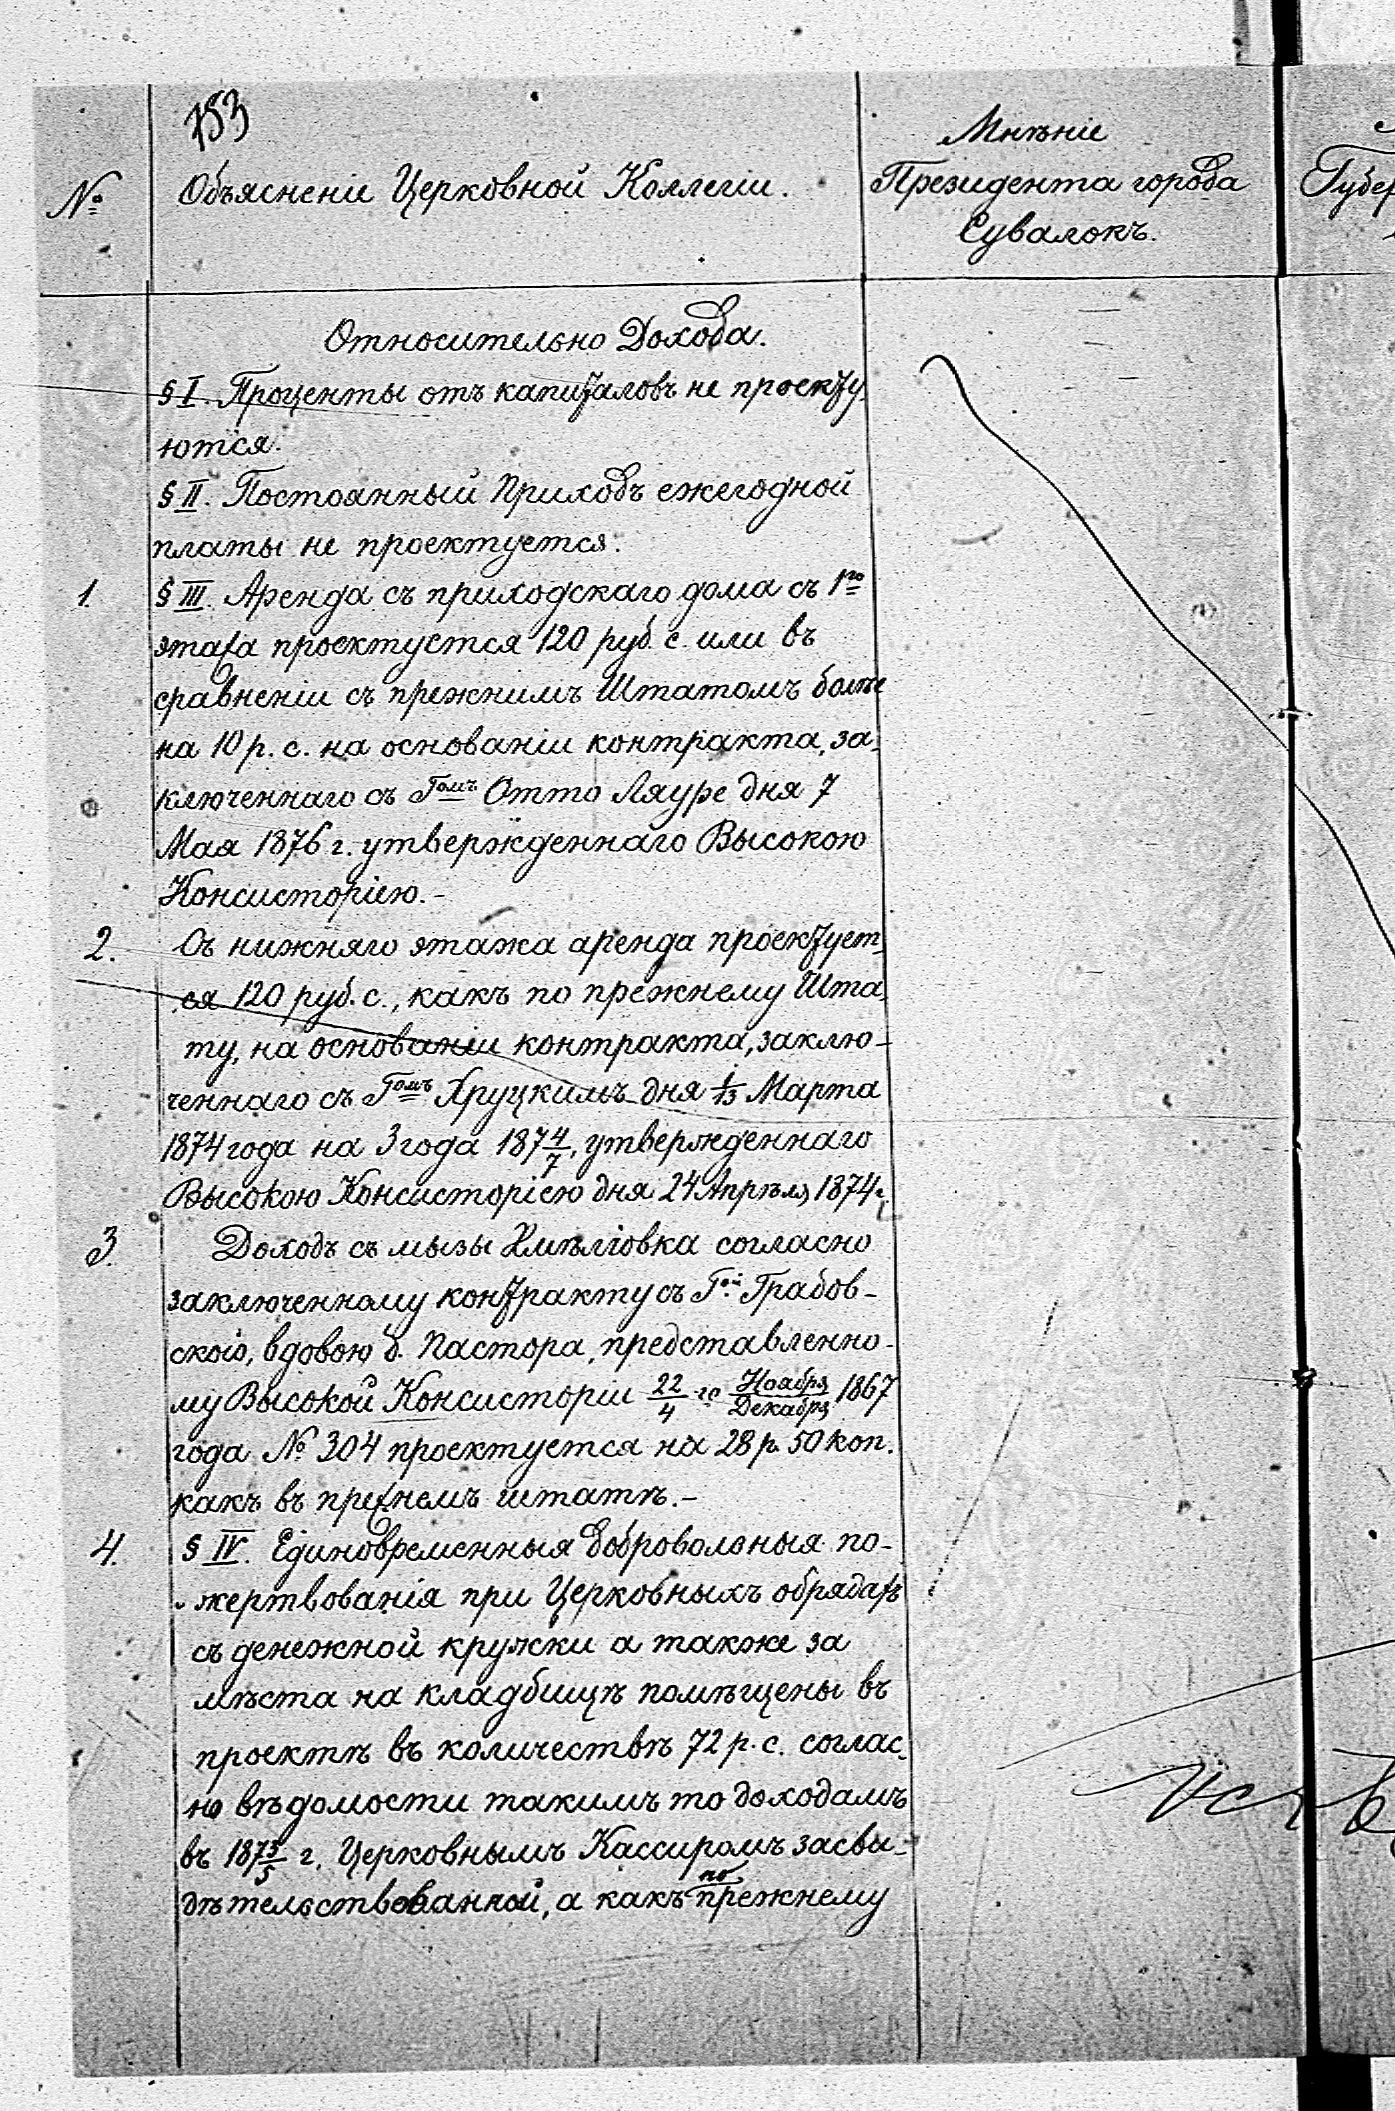 753
№
Объясненіе Церковной Коллегіи.
Мнѣніе
Президента города
Сувалокъ.
Губер
Относительно Дохода.
§ I. Проценты отъ капиталовъ не проекту-
ются.
§ II. Постоянный Приходъ ежегодной
платы не проектуется.
1. § III. Аренда съ приходскаго дома съ 1го
этажа проектуется 120 руб. с. или въ
сравненіи съ прежнимъ Штатомъ болѣе
на 10 р. с. на основаніи контракта, за-
ключеннаго съ Гомъ Отто Ляуре дня 7
Мая 1876 г. утвержденнаго Высокою
Консисторіею.-
2. Съ нижняго этажа аренда проектует-
ся 120 руб. с., какъ по прежнему Шта-
ту, на основаніи контракта, заклю-
ченнаго съ Гомъ Хруцкимъ дня 1/13 Марта
1874 года на 3 года 1874/7, утвержденнаго
Высокою Консисторіею дня 24 Апрѣля 1874 г.
3. Доходъ съ мызы Хмѣлювка согласно
заключенному контракту съ Г.ой Грабов-
скою, вдовою б. Пастора, представленно-
му Высокой Консисторіи 22/4 го Ноября/Декабря 1867
года № 304 проектуется на 28 р. 50 коп.
какъ въ прежнемъ штатѣ.-
4. § IV. Единовременныя добровольныя по-
жертвованія при Церковныхъ обрядахъ
съ денежной кружки а также за
мѣста на кладбищѣ помѣщены въ
проектѣ въ количествѣ 72 р. с. соглас-
но вѣдомости такимъ то доходамъ
въ 1873/5 г. Церковнымъ Кассиромъ засви-
дѣтельствованной, а какъ по прежнему